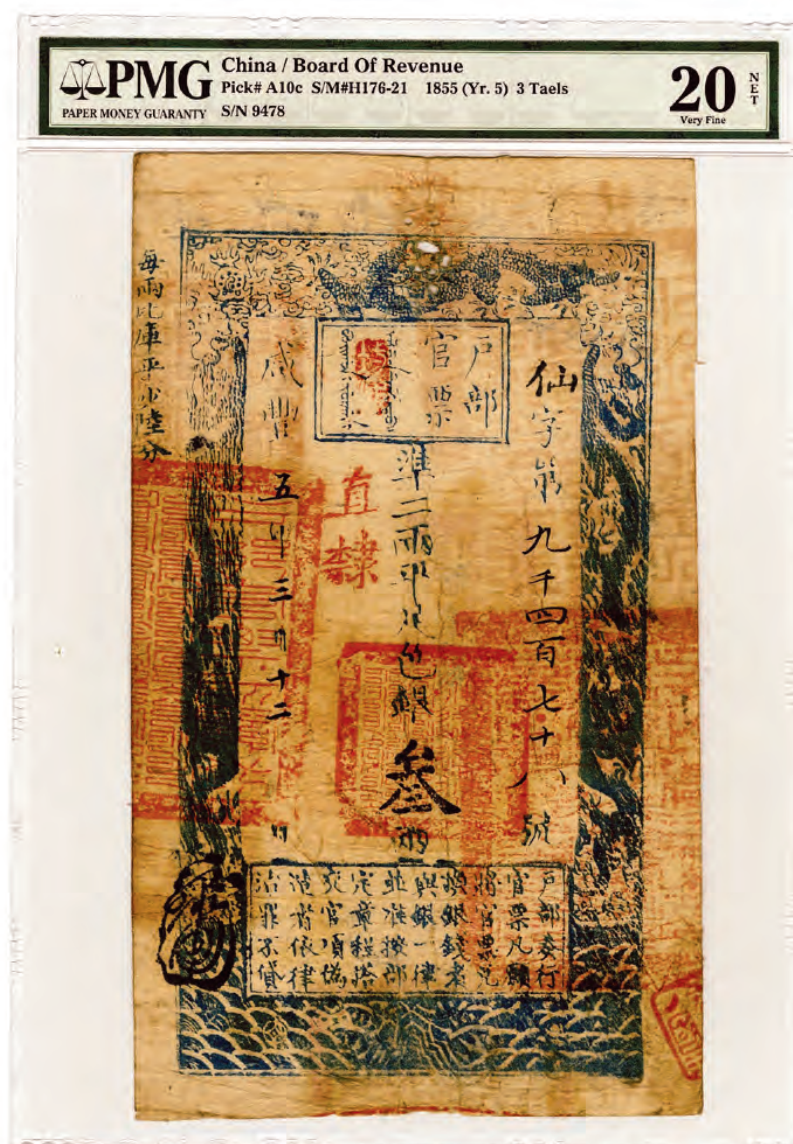 PMG
PAPER MONEY GUARANTY
China / Board Of Revenue
Pick# A10c S/M#H176-21 1855 (Yr. 5) 3 Taels
S/N 9478
20
Very Fine
NET
戶部
官票
仙字第九千四百七十八號
準二兩平足色銀叁兩
直隸
咸豐五年三月十二日
每兩比庫平少陸分
戶部奏行
官票凡願
將官票兌
換銀錢者
與銀一律
並准按部
定章程搭
交官項偽
造者依律
治罪不貸